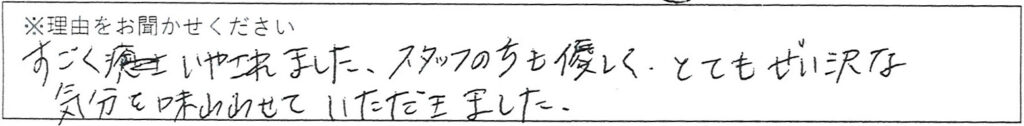 ※理由をお聞かせください
すごくいやされました、スタッフの方も優しく、とてもぜい沢な
気分を味あわせていただきました。